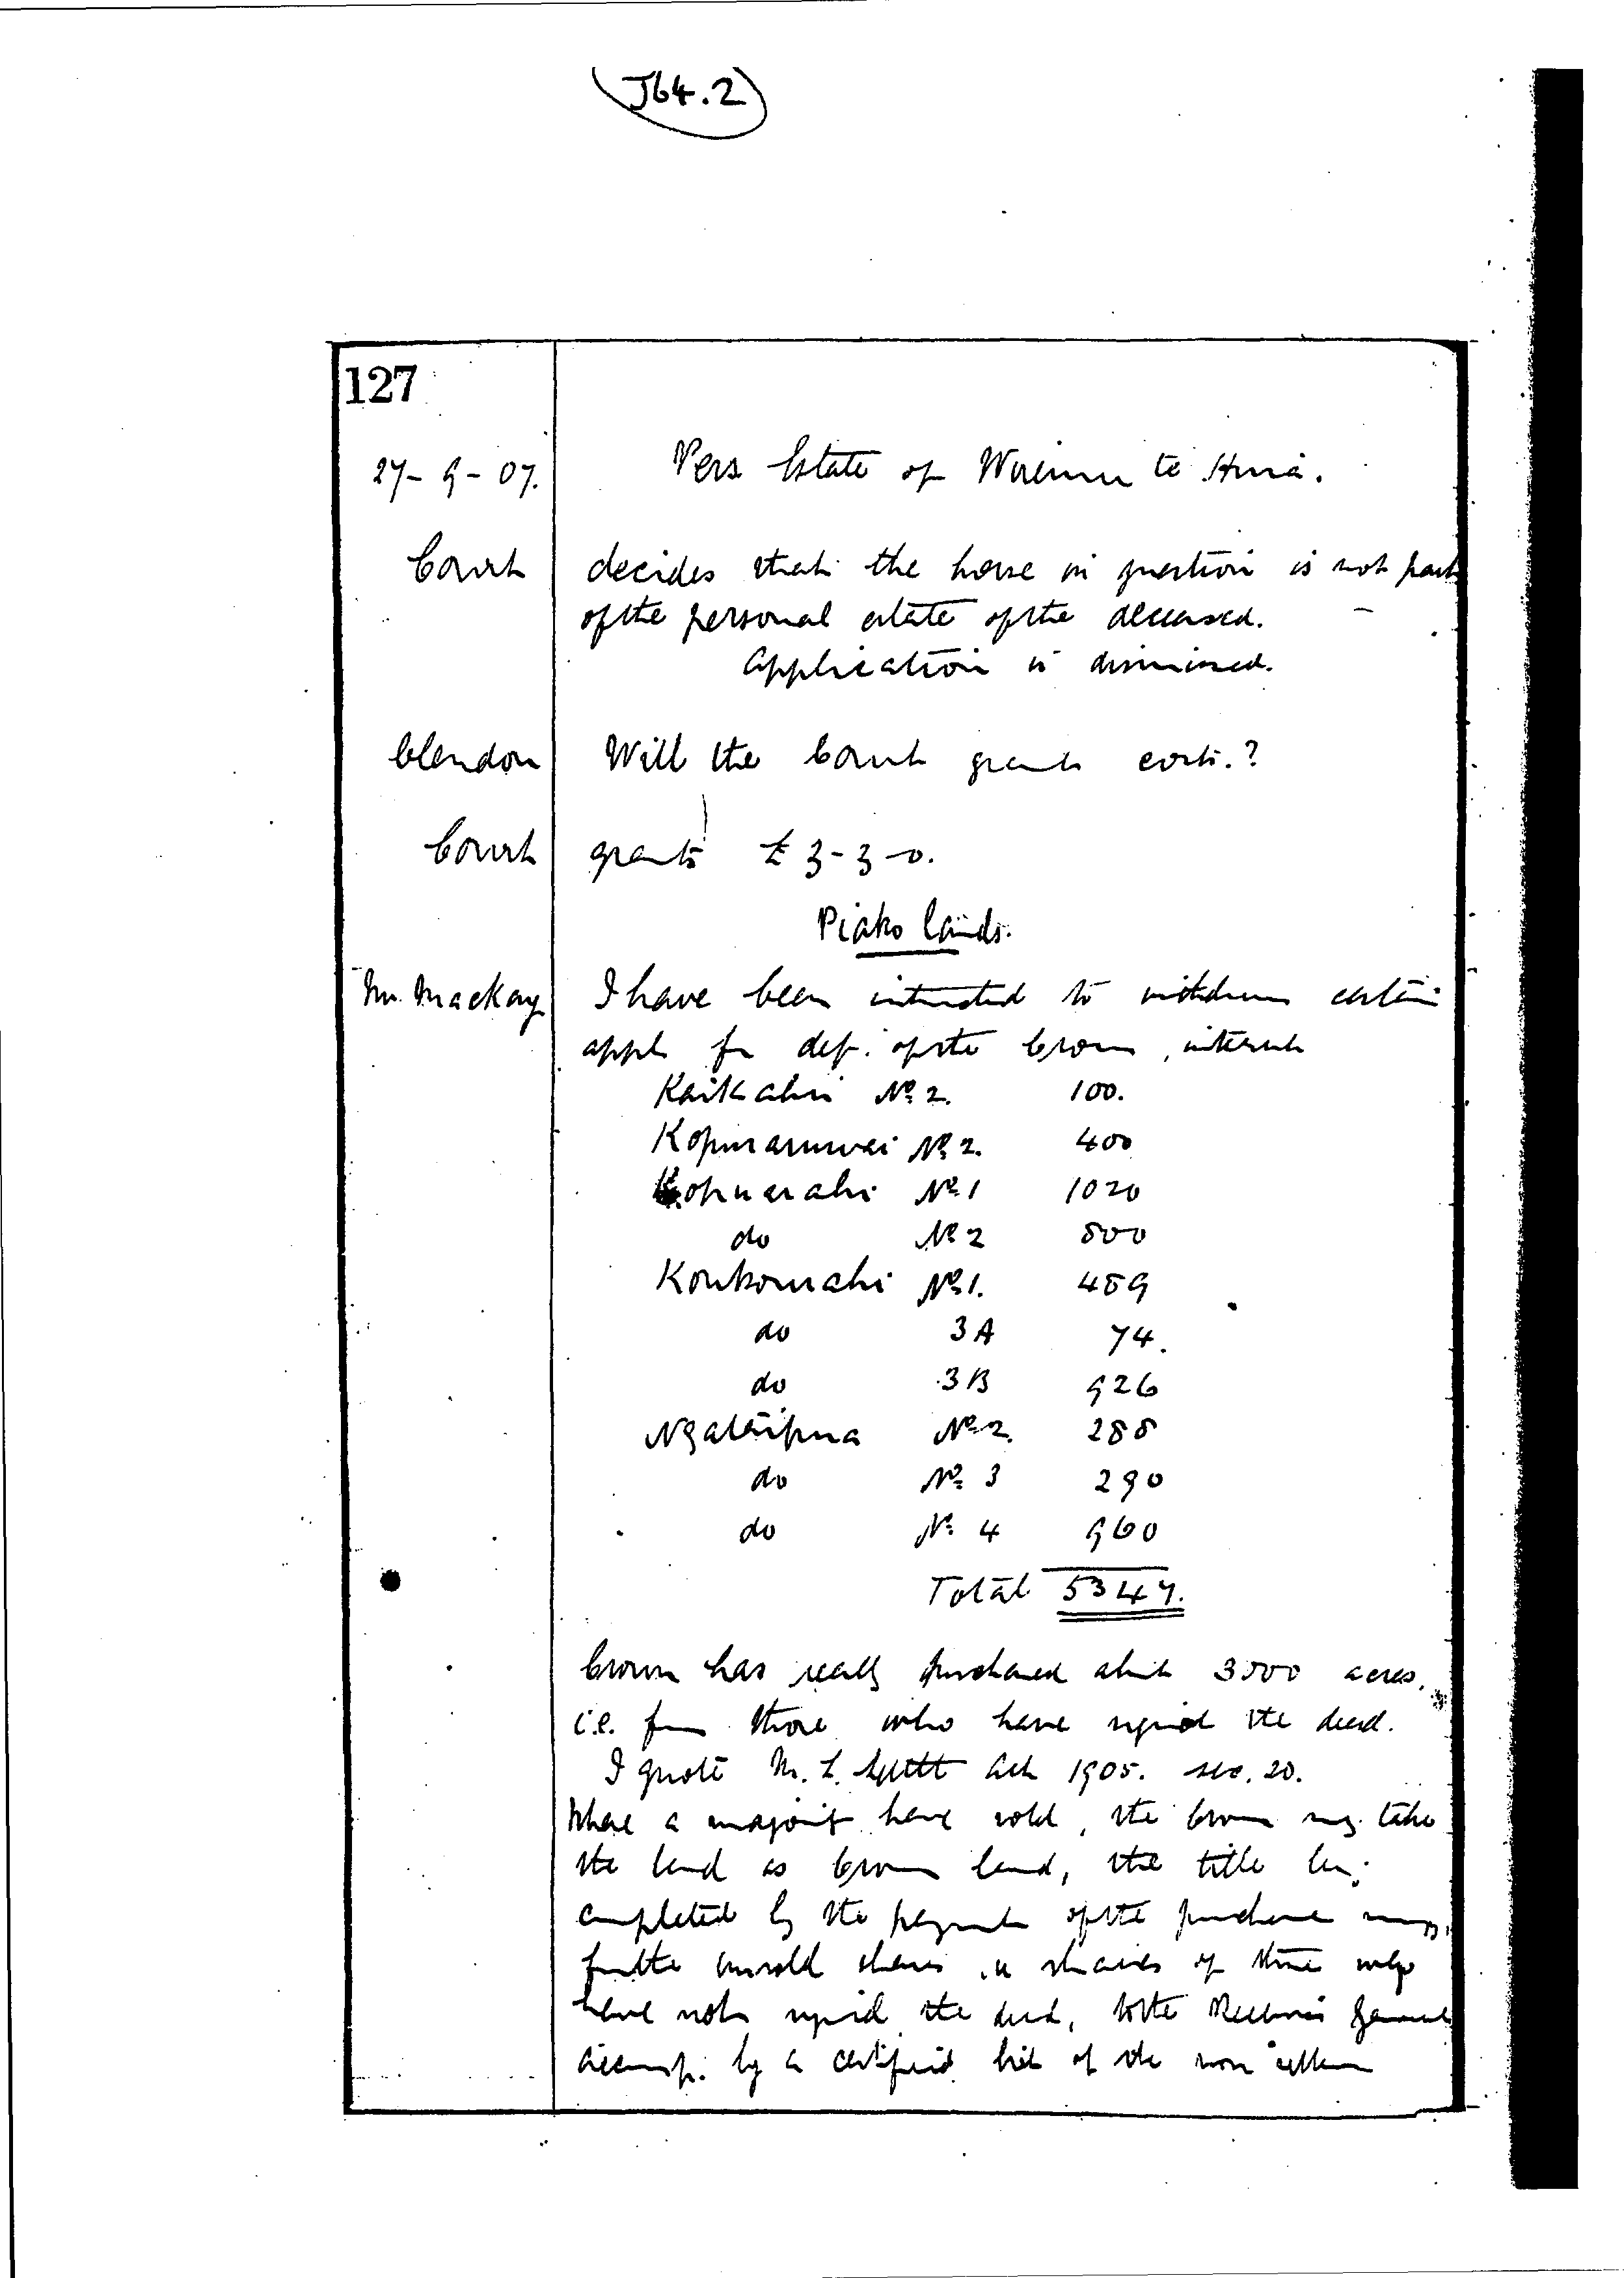 J64.2
127
27-9-07. Pers Estate of Wiremu te Huia.
Court decides that the horse in question is not part
of the personal estate of the deceased.
Application is dismissed.
Clendon Will the Court grant costs.?
Court grants £3-3-0.
Piako lands.
Mr. Mackay I have been instructed to withdraw certain
appls for def. of the Crown interests
Kaikahu No. 2. 100.
Kopuraruwai No. 2. 400
Kopuarahi No. 1 1020
do No. 2 800
Koukourahi No. 1. 489
do 3A 74.
do 3B 926
Ngataipua No. 2. 288
do No. 3 290
do No. 4 960
Total 5347.
Crown has really purchased abt 3500 acres.
i.e. from those who have signed the deed.
I quote M. L. Settt Act 1905. sec. 20.
Where a majority have sold, the Crown may take
the land as Crown land, the title being
completed by the payment of the purchase money
for the unsold shares, i.e. shares of those who
have not signed the deed, to the Receiver General
accomp. by a certified list of the non sellers